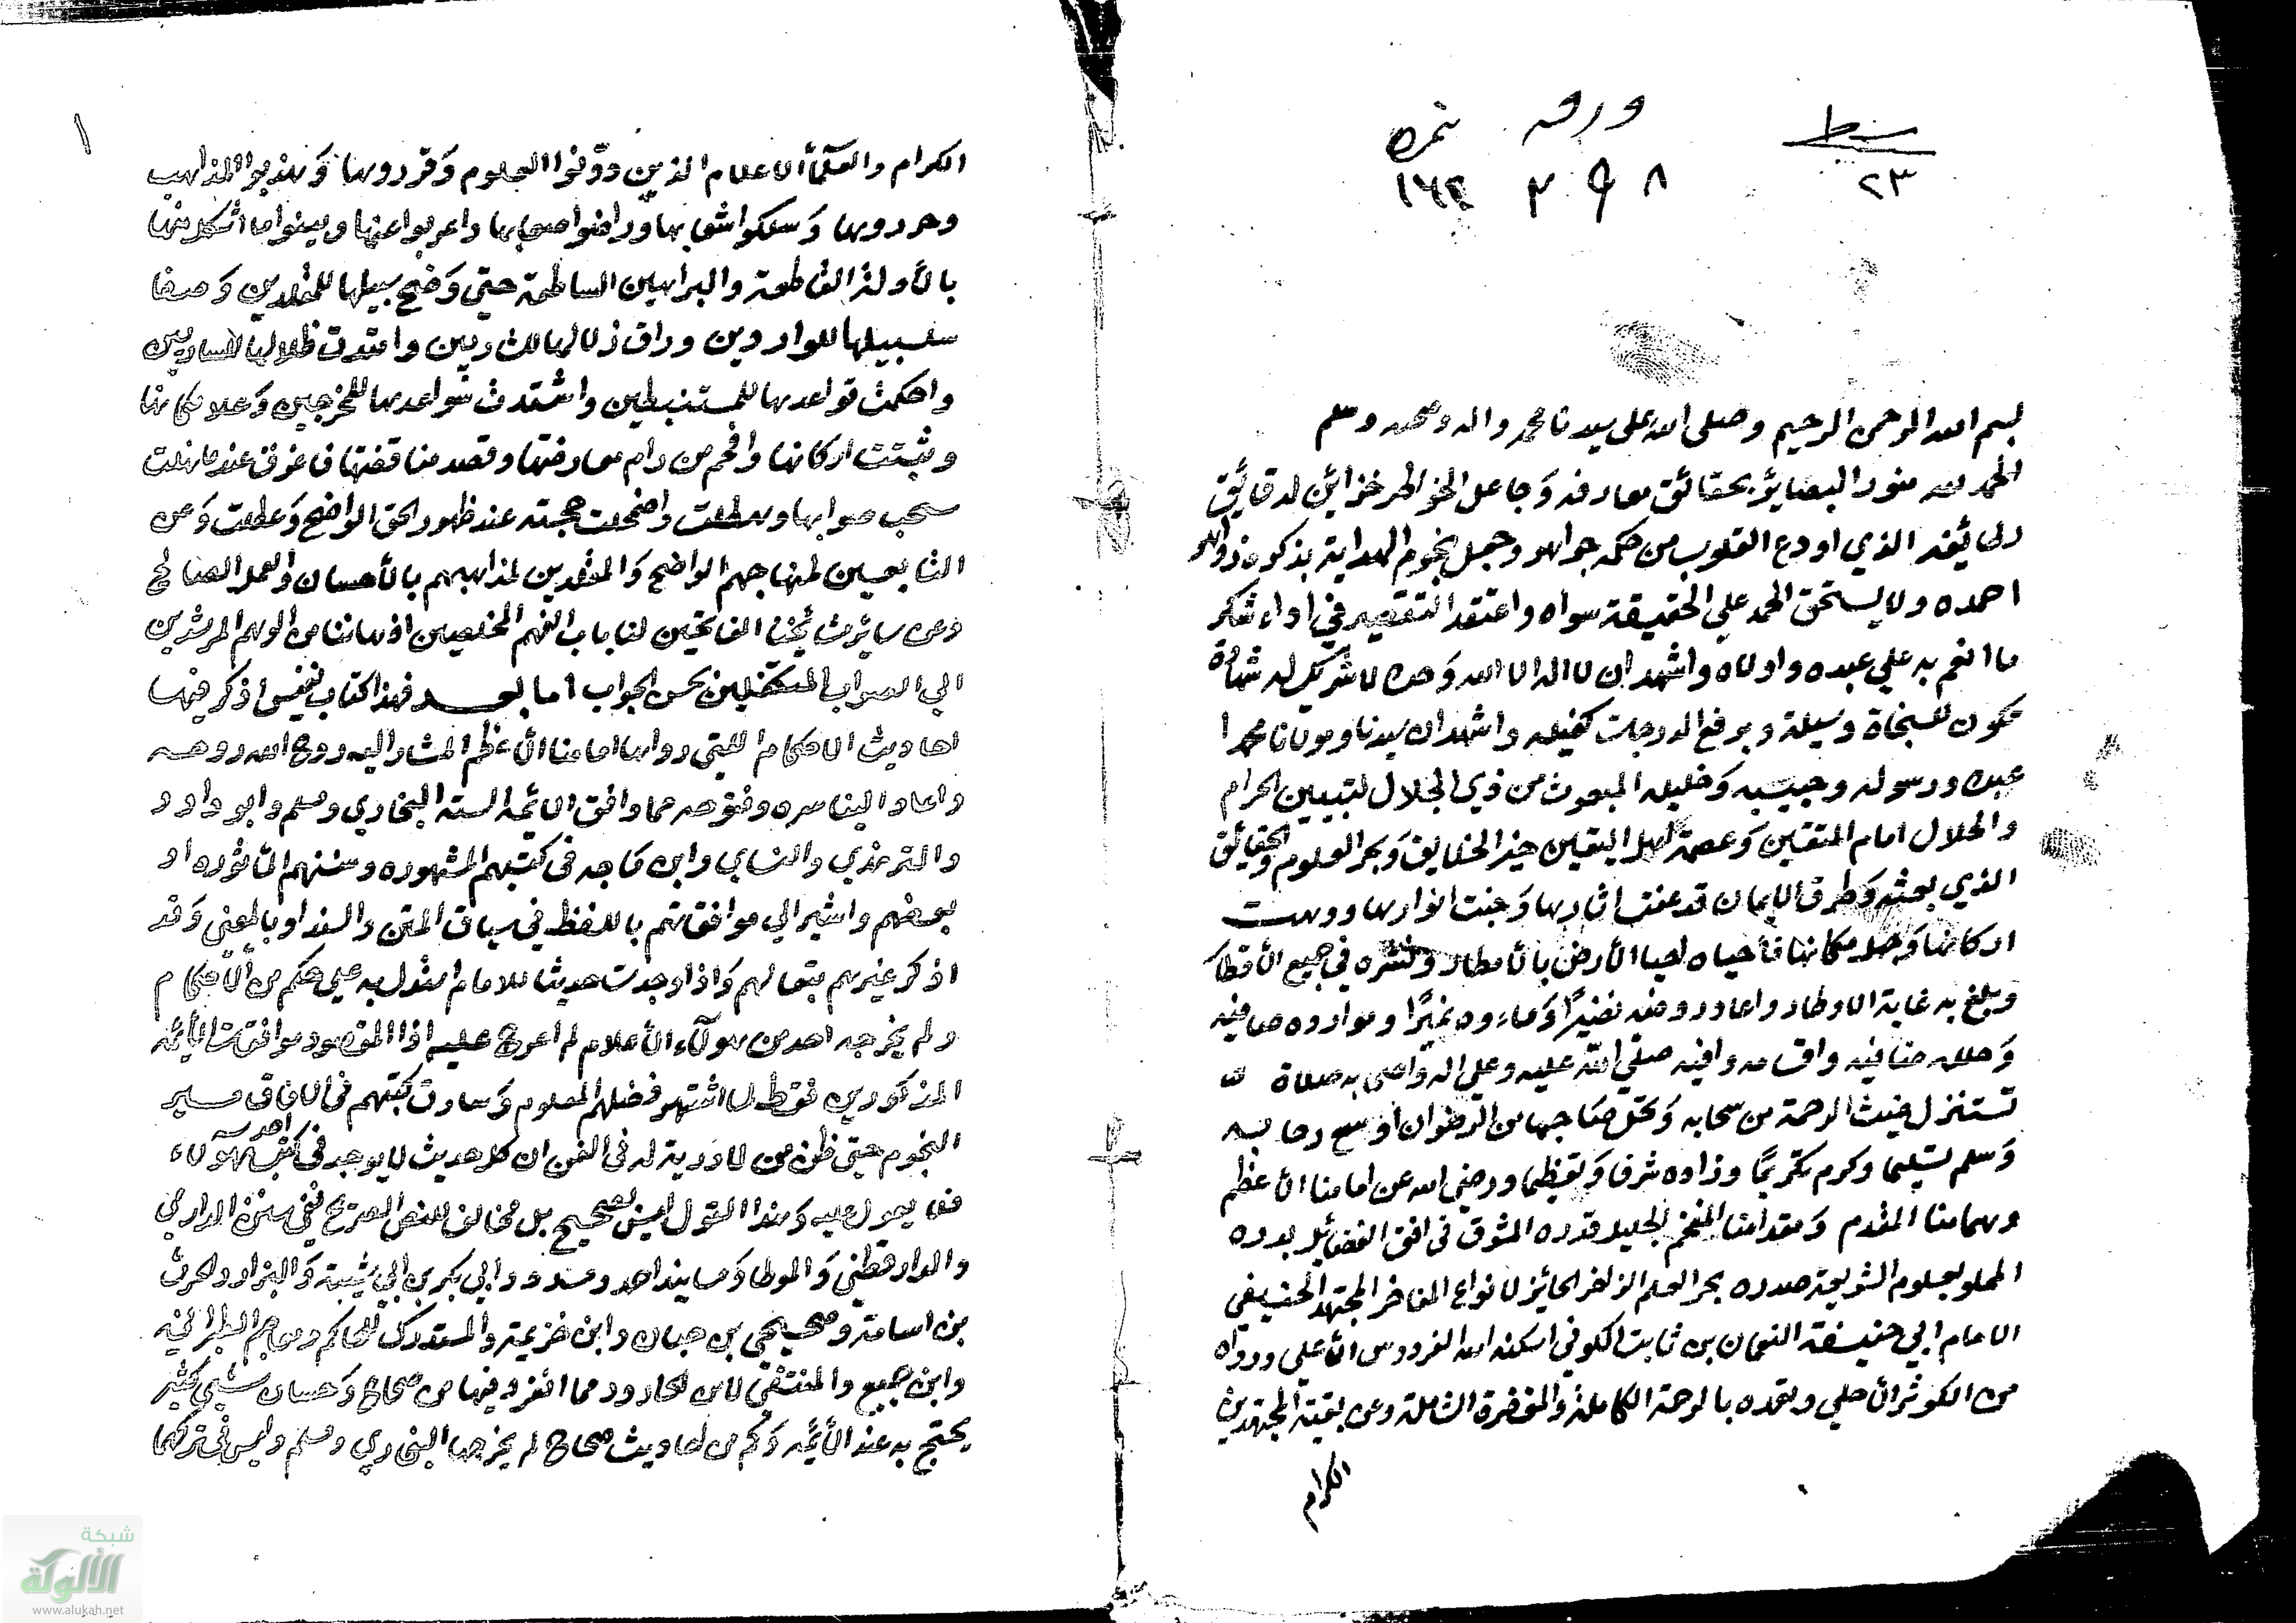 ورقه نمره
سطر
٢٣
٢٩٨ ١٦٢
بسم الله الرحمن الرحيم وصلى الله على سيدنا محمد واله وصحبه وسلم
الحمد لله منور البصائر بحقائق معارفه وَجاعل الخواطر خزائن لدقائق
لطائفه الذي اودع القلوب من حكمه جواهر وجعل نجوم الهداية بذكره زواهر
احمده ولا يستحق الحمد علي الحقيقة سواه واعتقد التقصير في اداء شكر
ما انعم به علي عبده واولاه واشهد ان لا اله الا الله وَحده لا شريك له شهادة
تكون للنجاة وسيلة وبرفع الدرجات كفيله واشهد ان سيدنا ومولانا محمدا
عبده ورسوله وحبيبه وَخليله المبعوث من ذي الجلال لتبيين الحرام
والحلال امام المتقين وَعصمة اهل اليقين خير الخلايق وَبحر العلوم والحقائق
الذي بعثه وَطرق الايمان قد عفت اثارها وَخبت انوارها ووهت
اركانها وَجهل مكانها فأحياه احيا الأرض بالأمطار ونشره في جميع الأقطار
وبلغ به غاية الاوطار واعاد روضه نضيرًا وَماءه نميرًا وموارده صافيه
وَحلله ضافيه واقسامه وافيه صلى الله عليه وعلى اله واصحابه صلاة
تستنزل غيث الرحمة من سحابه وَتحل صاحبها من الرضوان اوسع رحابه
وَسلم تسليما وكرم تكريمًا وزاده شرفا وَتعظيما ورضي الله عن امامنا الأعظم
وهمامنا المقدم وَمقدامنا المفخم الجليل قدره المشرق في افق الفضائل بدره
المملو بعلوم الشريعة صدره بحر العلم الزاخر الحائز لانواع المفاخر المجتهد الحنيفي
الامام ابي حنيفة النعمان بن ثابت الكوفي اسكنه الله الفردوس الأعلى ورواه
من الكوثر الأحلي وتغمده بالرحمة الكاملة والمغفرة الشاملة وعن بقية المجتهدين
الكرام
١
الكرام والعلمآ الاعلام الذين دونوا العلوم وَقرروها وَهذبوا المذاهب
وحرروها وَسلكوا شعابها وراضوا صعابها واعربوا عنها وبينوا ما اشكل منها
بالأدلة القاطعة والبراهين الساطعة حتى وَضح سبيلها للمقلدين وَصفا
سلسبيلها للواردين وراق زلالها للشاربين وامتدت ظلالها للسارين
واحكمت قواعدها للمستنبطين واشتدت سواعدها للمخرجين وَعلا مكانها
وثبتت اركانها وافحم من رام معارضتها وقصد مناقضتها فاغرق عند ما هطلت
سحب صوابها وبطلت واضمحلت حجته عند ظهور الحق الواضح وَعطلت وَعن
التابعين لمنهاجهم الواضح وَالمقلدين لمذاهبهم بالأحسان والعمل الصالح
وعن ساير مشايخنا الفاتحين لنا باب الفهم المخلصين اذهاننا من الوهم المرشدين
الي الصواب المتكفلين بحسن الجواب اما بعد فهذا كتاب نفيس اذكر فيها
احاديث الاحكام اللتى رواها امامنا الأعظم المشار اليه روح الله روحه
واعاد الينا سره وفتوحه مما وافق الائمه الستة البخاري ومسلم وابو داود
والترمذي والنساي وابن ماجه فى كتبهم المشهوره وسننهم المأثوره او
بعضهم واشير الي موافقتهم باللفظ في سياق المتن والسند او بالمعنى وَقد
اذكر غيرهم تبعا لهم وَاذا وجدت حديثا للامام استدل به على حكم من الأحكام
ولم يخرجه احد من هولآء الأعلام لم اعرج عليه اذا المقصود موافقة الأيمه
المذكورين فقط لما اشتهر فضلهم المعلوم وَسارت كتبهم فى الافاق مسير
النجوم حتى ظن من لا دريه له فى الفن ان كل حديث لا يوجد فى كتب احد هولاء
فلا يعول عليه وَهذا القول ليس بصحيح بل مخالف للنص الصريح ففى سنن الدارمي
والدارقطني وَالموطا وَمسانيد احمد ومسدد وابي بكر بن ابي شيبة وَالبزار والحرث
بن اسامة وصحيحي بن حبان وابن خزيمة والمستدرك للحاكم ومعاجم الطبراني
وابن جميع والمنتقى لابن الجارود مما انفرد فيها من صحاح وَحسان شيئ كثير
يحتج به عند الأيمه وَكم من احاديث صحاح لم يخرجها البخاري ومسلم وليس في تركهما
شبكة
الألوكة
www.alukah.net